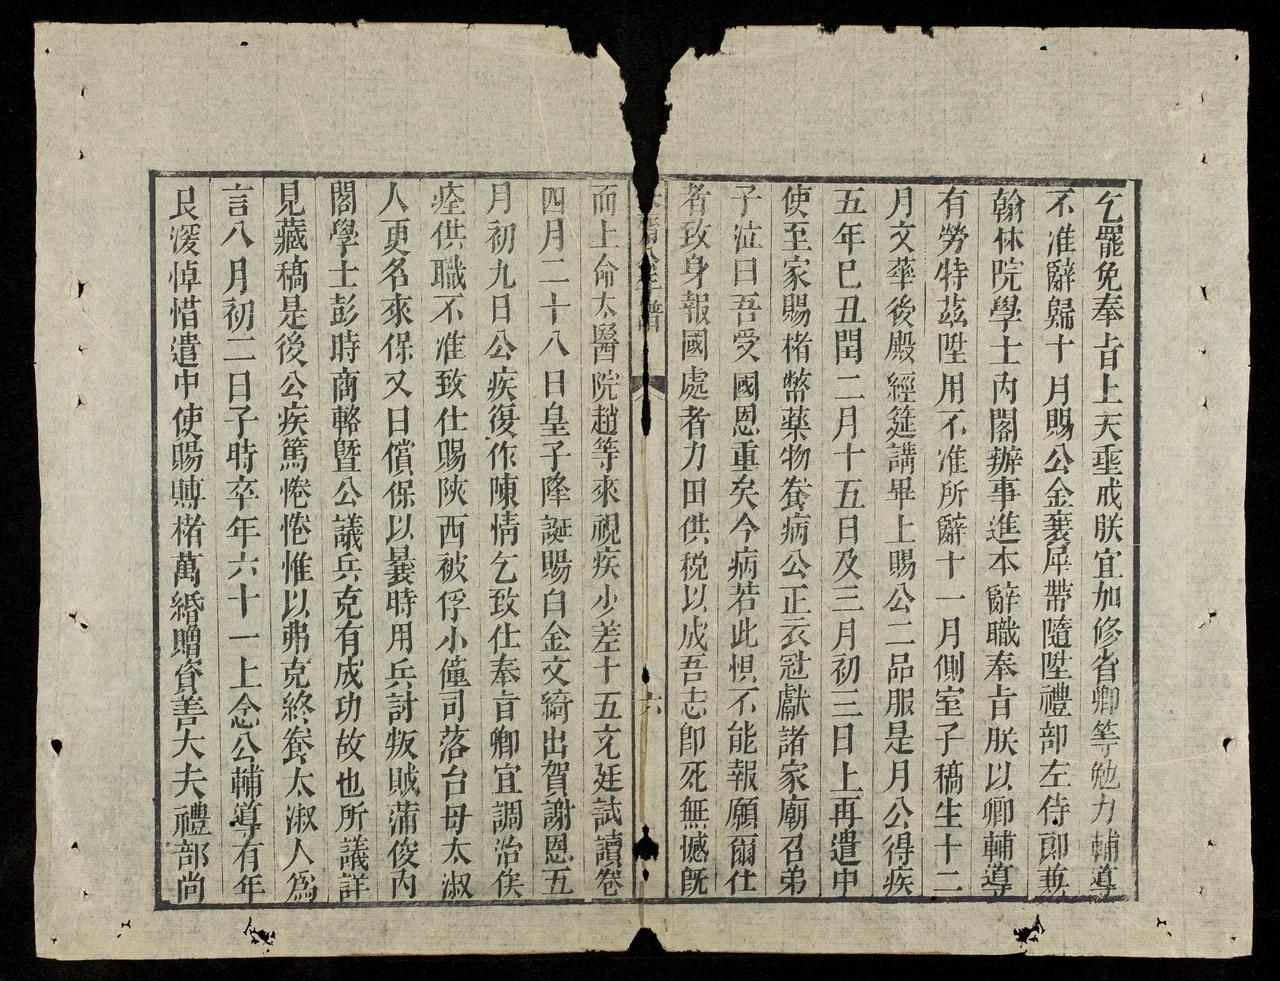 乞罷免奉旨上天垂戒朕宜加修省卿等勉力輔導
不准辭歸十月賜公金襄犀帶隨陞禮部左侍郎兼
翰林院學士內閣辦事進本辭職奉旨朕以卿輔導
有勞特茲陞用不准所辭十一月側室子稿生十二
月文華後殿經筵講畢上賜公二品服是月公得疾
五年己丑閏二月十五日及三月初三日上再遣中
使至家賜楮幣藥物養病公正衣冠獻諸家廟召弟
子泣曰吾受國恩重矣今病若此惧不能報願爾仕
者致身報國處者力田供稅以成吾志卽死無憾旣
年譜
六
而上命太醫院趙等來視疾少差十五充廷試讀卷
四月二十八日皇子降誕賜白金文綺出賀謝恩五
月初九日公疾復作陳情乞致仕奉旨卿宜調治俟
痊供職不准致仕賜陝西被俘小僮司落台母太淑
人更名來保又曰償保以曩時用兵討叛賊蒲俊內
閣學士彭時商輅曁公議兵克有成功故也所議詳
見藏稿是後公疾篤惓惓惟以弗克終養太淑人爲
言八月初二日子時卒年六十一上念公輔導有年
良深悼惜遣中使賜賻楮萬緡贈資善大夫禮部尚